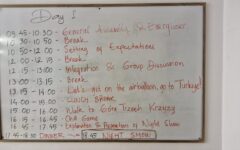 Day 1
09.45-10.30 - General Assembly &
10.30-10.50 - Break
10.50-12.00 - Setting of Expectations
12.00-12.15 - Break
12.15-13.00 - Integration & Group Discussion
13.00-13.15 - Break
13.15-14.00 - Let's get on the airballoon, go to Turkiye!
14.00-15.00 - LUNCH BREAK
15.00-16.00 - Walk to Góra Trzech Krzyży
16.45 - Old Game
17.45 - Explanation & Preparation of Night Show
17.45-18.30 DINNER 18.45 NIGHT SHOW